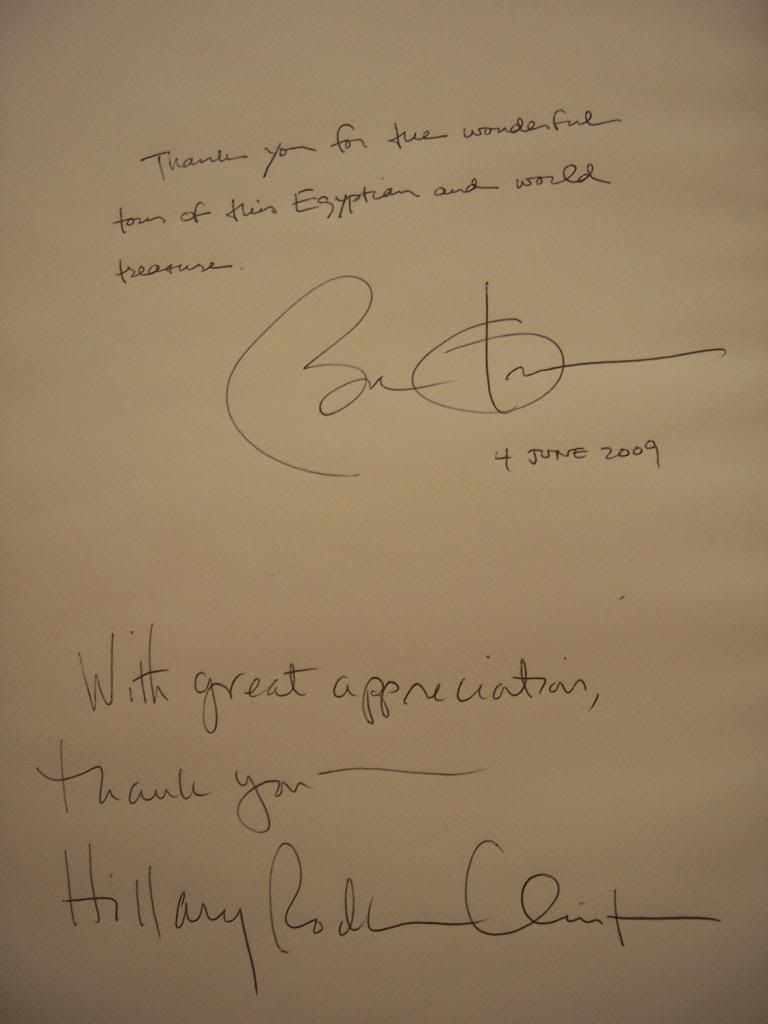 Thank you for the wonderful
tour of this Egyptian and world
treasure.
4 JUNE 2009
With great appreciation,
thank you —
Hillary Rodham Clinton